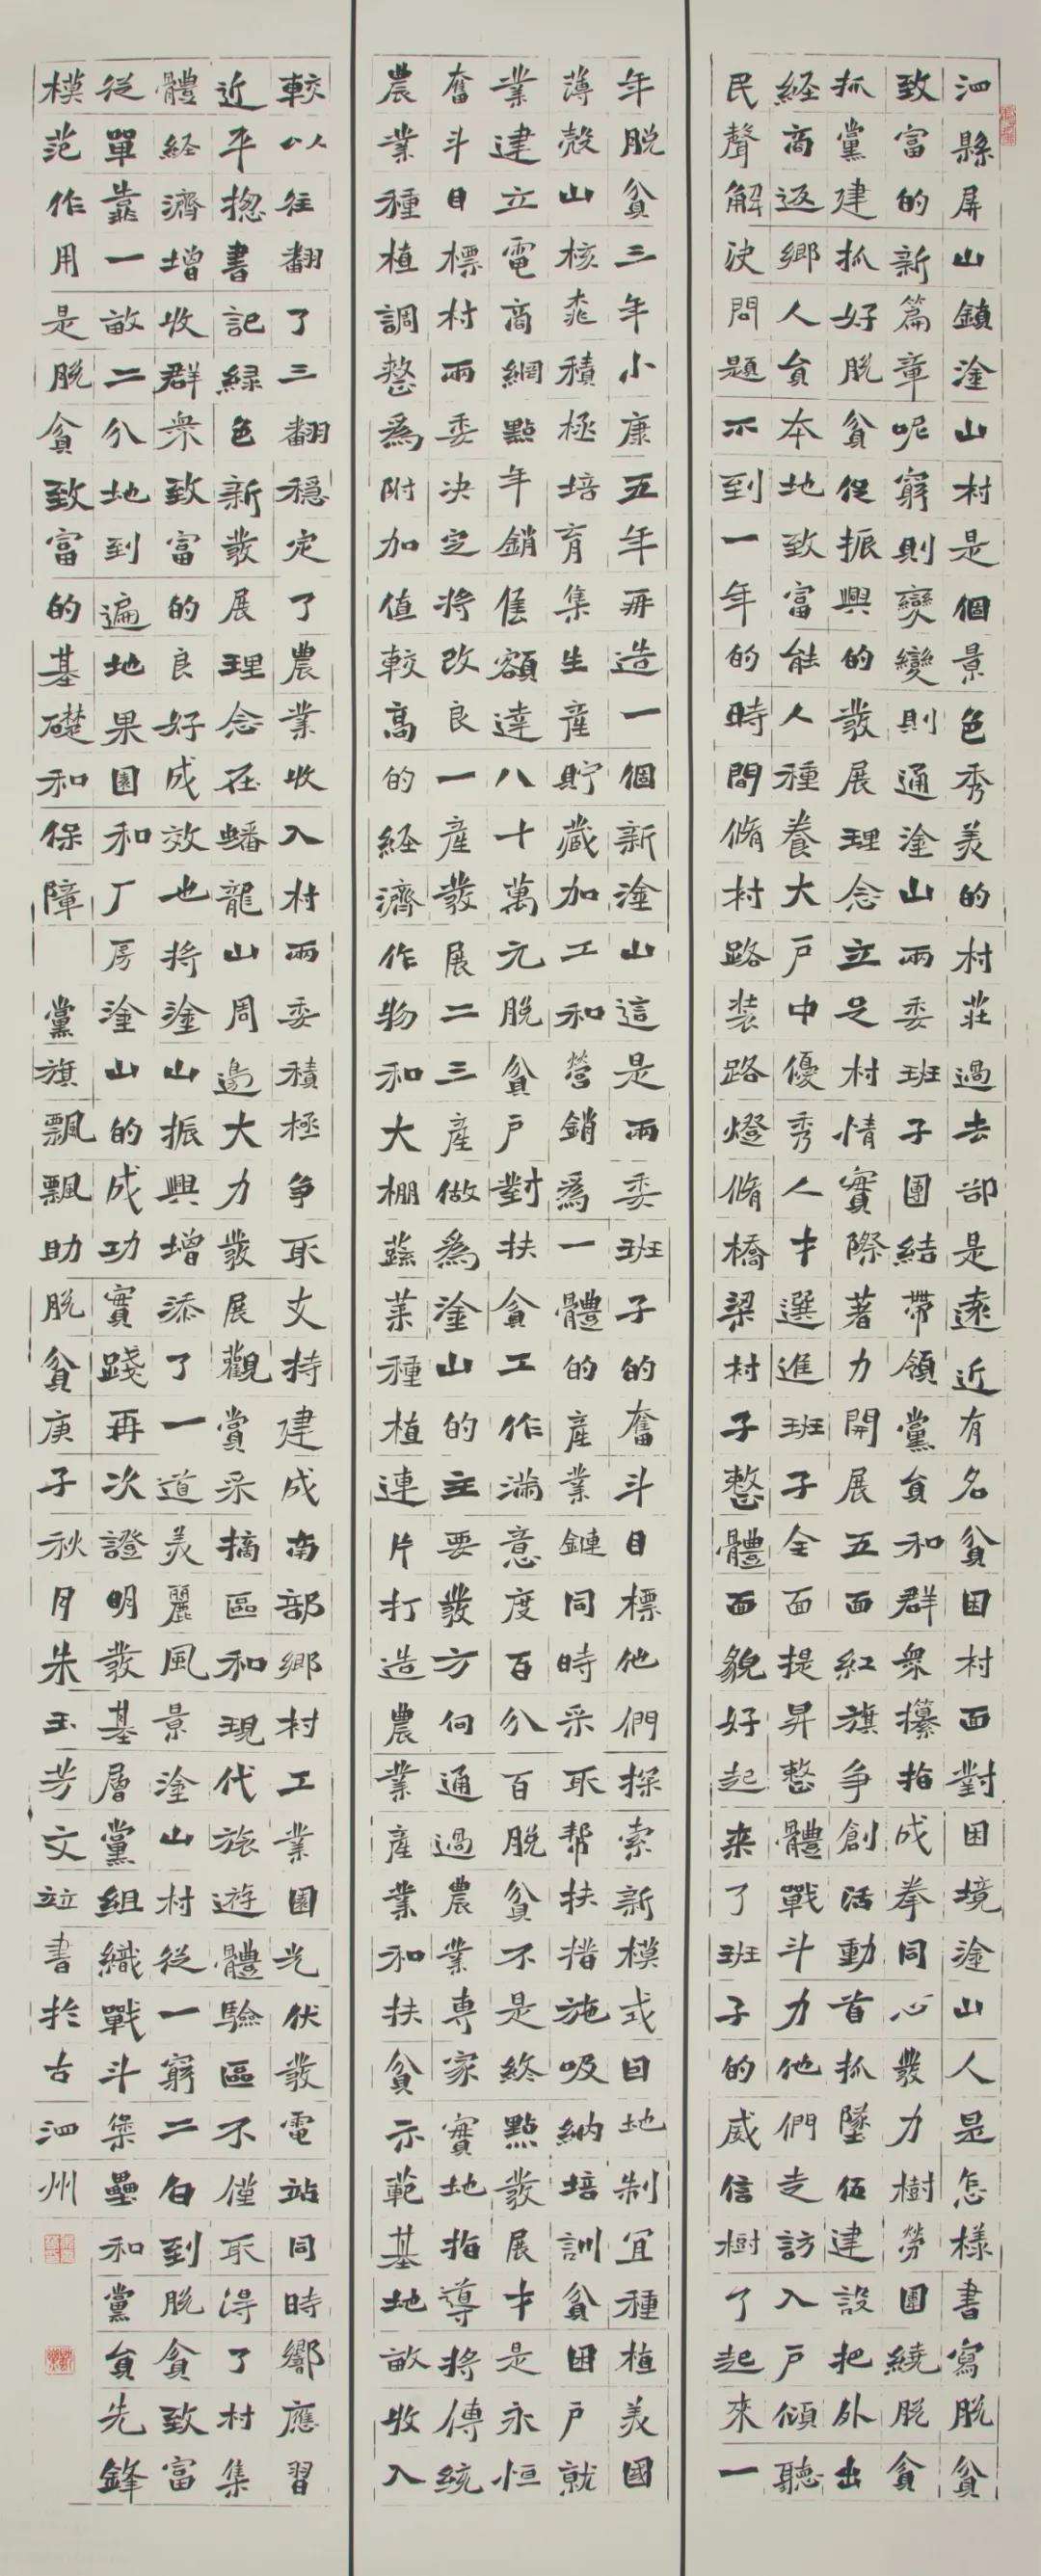 泗縣屏山鎮塗山村是個景色秀美的村莊過去卻是遠近有名貧困村面對困境塗山人是怎樣書寫脫貧
致富的新篇章呢窮則變變則通塗山兩委班子團結帶領黨員和群衆攥指成拳同心發力樹勞圍繞脫貧
抓黨建抓好脫貧促振興的發展理念立足村情實際著力開展五面紅旗爭創活動首抓墜伍建設把外出
經商返鄉人員本地致富能人種養大戶中優秀人才選進班子全面提昇整體戰斗力他們走訪入戶傾聽
民聲解決問題不到一年的時間脩村路裝路燈脩橋梁村子整體面貌好起来了班子的威信樹了起來一
年脫貧三年小康五年再造一個新塗山這是兩委班子的奮斗目標他們探索新模式因地制宜種植美國
薄殼山核桃積極培育集生産貯藏加工和營銷爲一體的産業鏈同時采取帮扶措施吸納培訓貧困戶就
業建立電商網點年銷售額達八十萬元脫貧戶對扶貧工作滿意度百分百脫貧不是終點發展才是永恒
奮斗目標村兩委決定將改良一産發展二三産做爲塗山的主要發方向通過農業專家實地指導將傳統
農業種植調整爲附加值較高的經濟作物和大棚蔬菜種植連片打造農業産業和扶貧示範基地畝收入
較以往翻了三翻穩定了農業收入村兩委積極争取支持建成南部鄉村工業園光伏發電站同時響應習
近平揔書記綠色新發展理念在蟠龍山周邊大力發展觀賞采摘區和現代旅遊體驗區不僅取得了村集
體經濟增收群衆致富的良好成效也將塗山振興增添了一道美麗風景塗山村從一窮二白到脫貧致富
從單靠一畝二分地到遍地果園和厂房塗山的成功實踐再次證明發基層黨組織戰斗堡壘和黨員先鋒
模范作用是脫貧致富的基礎和保障　黨旗飄飄助脫貧庚子秋月朱玉芳文竝書於古泗州